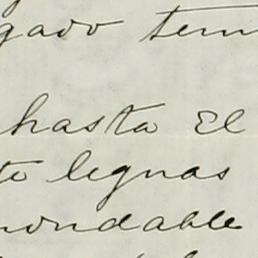 gado tem
hasta el
to leguas
nondable